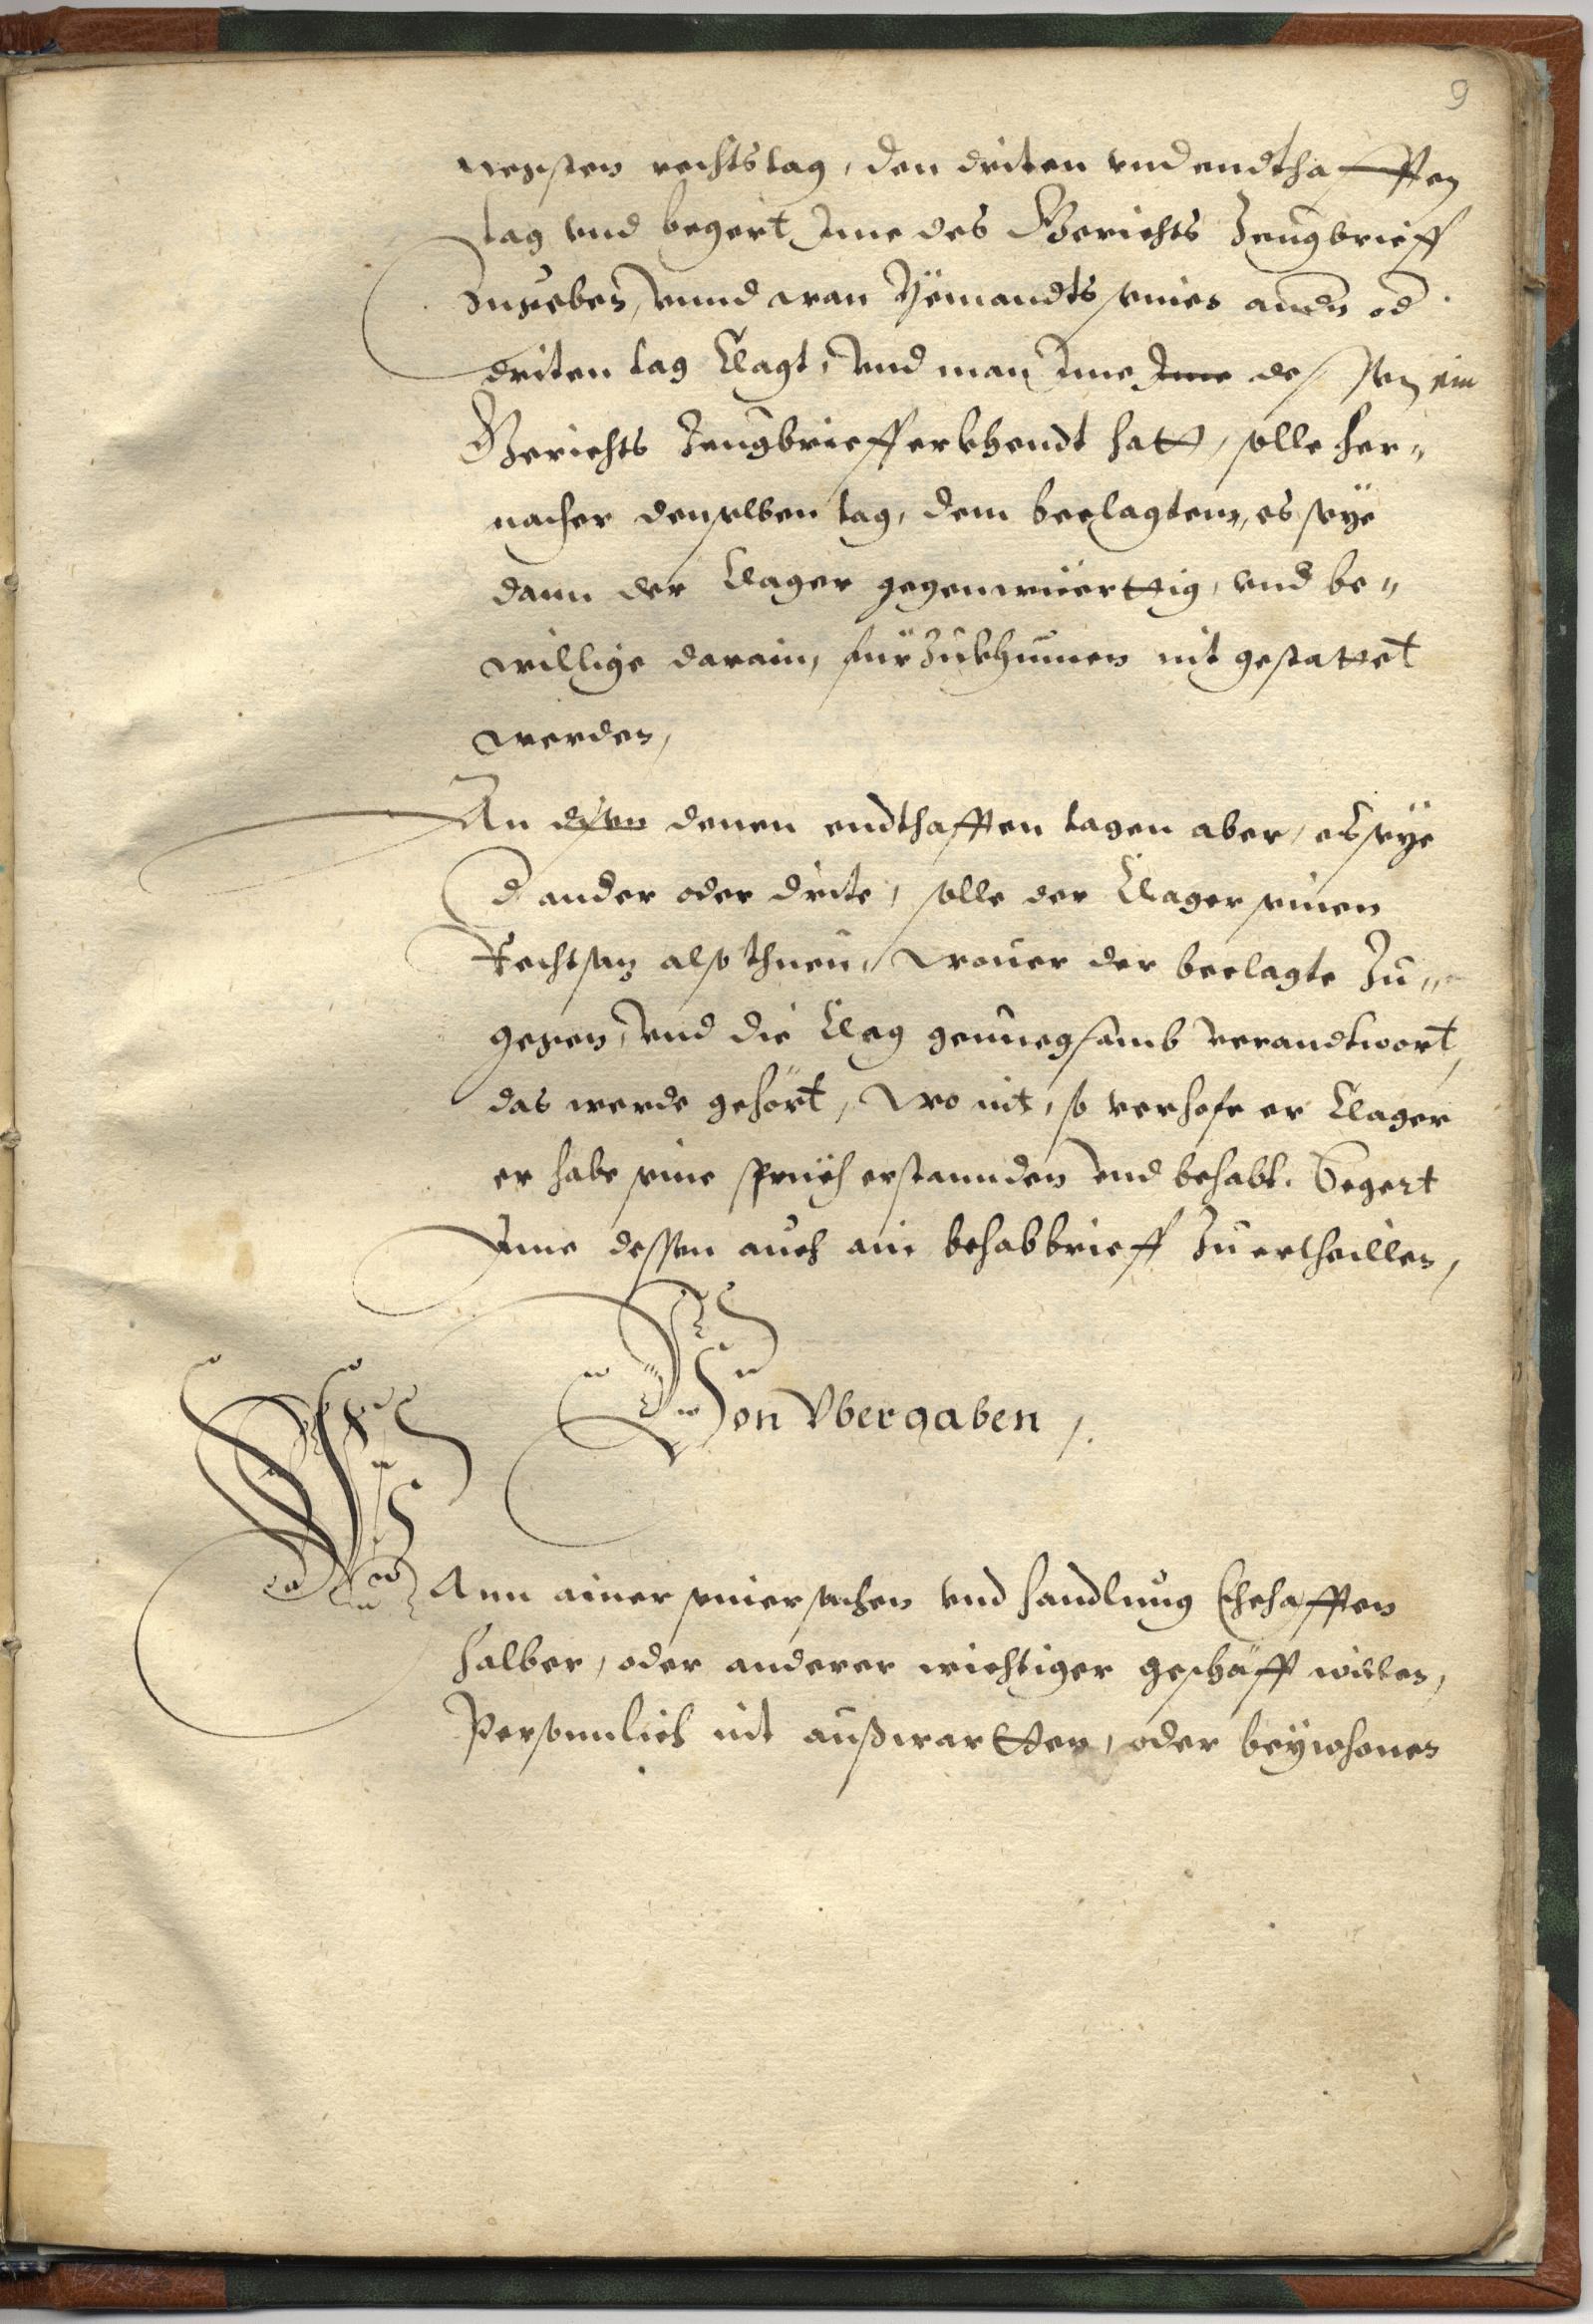 9
negsten rechtstag, den driten vnd endthafften
tag vnd begert Jme des Gerichts Zeugbrieff
Zugeben, vnnd wan Yëmandts seinen andn od
driten tag Clagt, vnd man Jme Jme dessen ein
Gerichts Zeugbrieff erkhendt hatt, solle her„
nacher denselben tag, dem beclagten, es seye
dann der Clager gegenwüerttig, vnd be„
willige darain, für Zukhumen nit gestattet
werden,
An disen denen endthafften tagen aber, es seye
d ander oder drite, solle der Clager seinen
Rechtsaz also thuen, wouer der beclagte Zu„
gegen, vnd die Clag genuegsamb verandtwort,
das werde gehört, wo nit, so verhofe er Clager
er habe seine sprüch erstannden vnd behabt. Begert
Jme dessen auch ain behabbrieff Zu ertheillen,
Von Vbergaben /.
Wann ainer seiner sachen vnd handlung Ehehafften
halber, oder anderer wichtiger geschäfft willen,
Personnlich nit außwartten, oder beywohnen